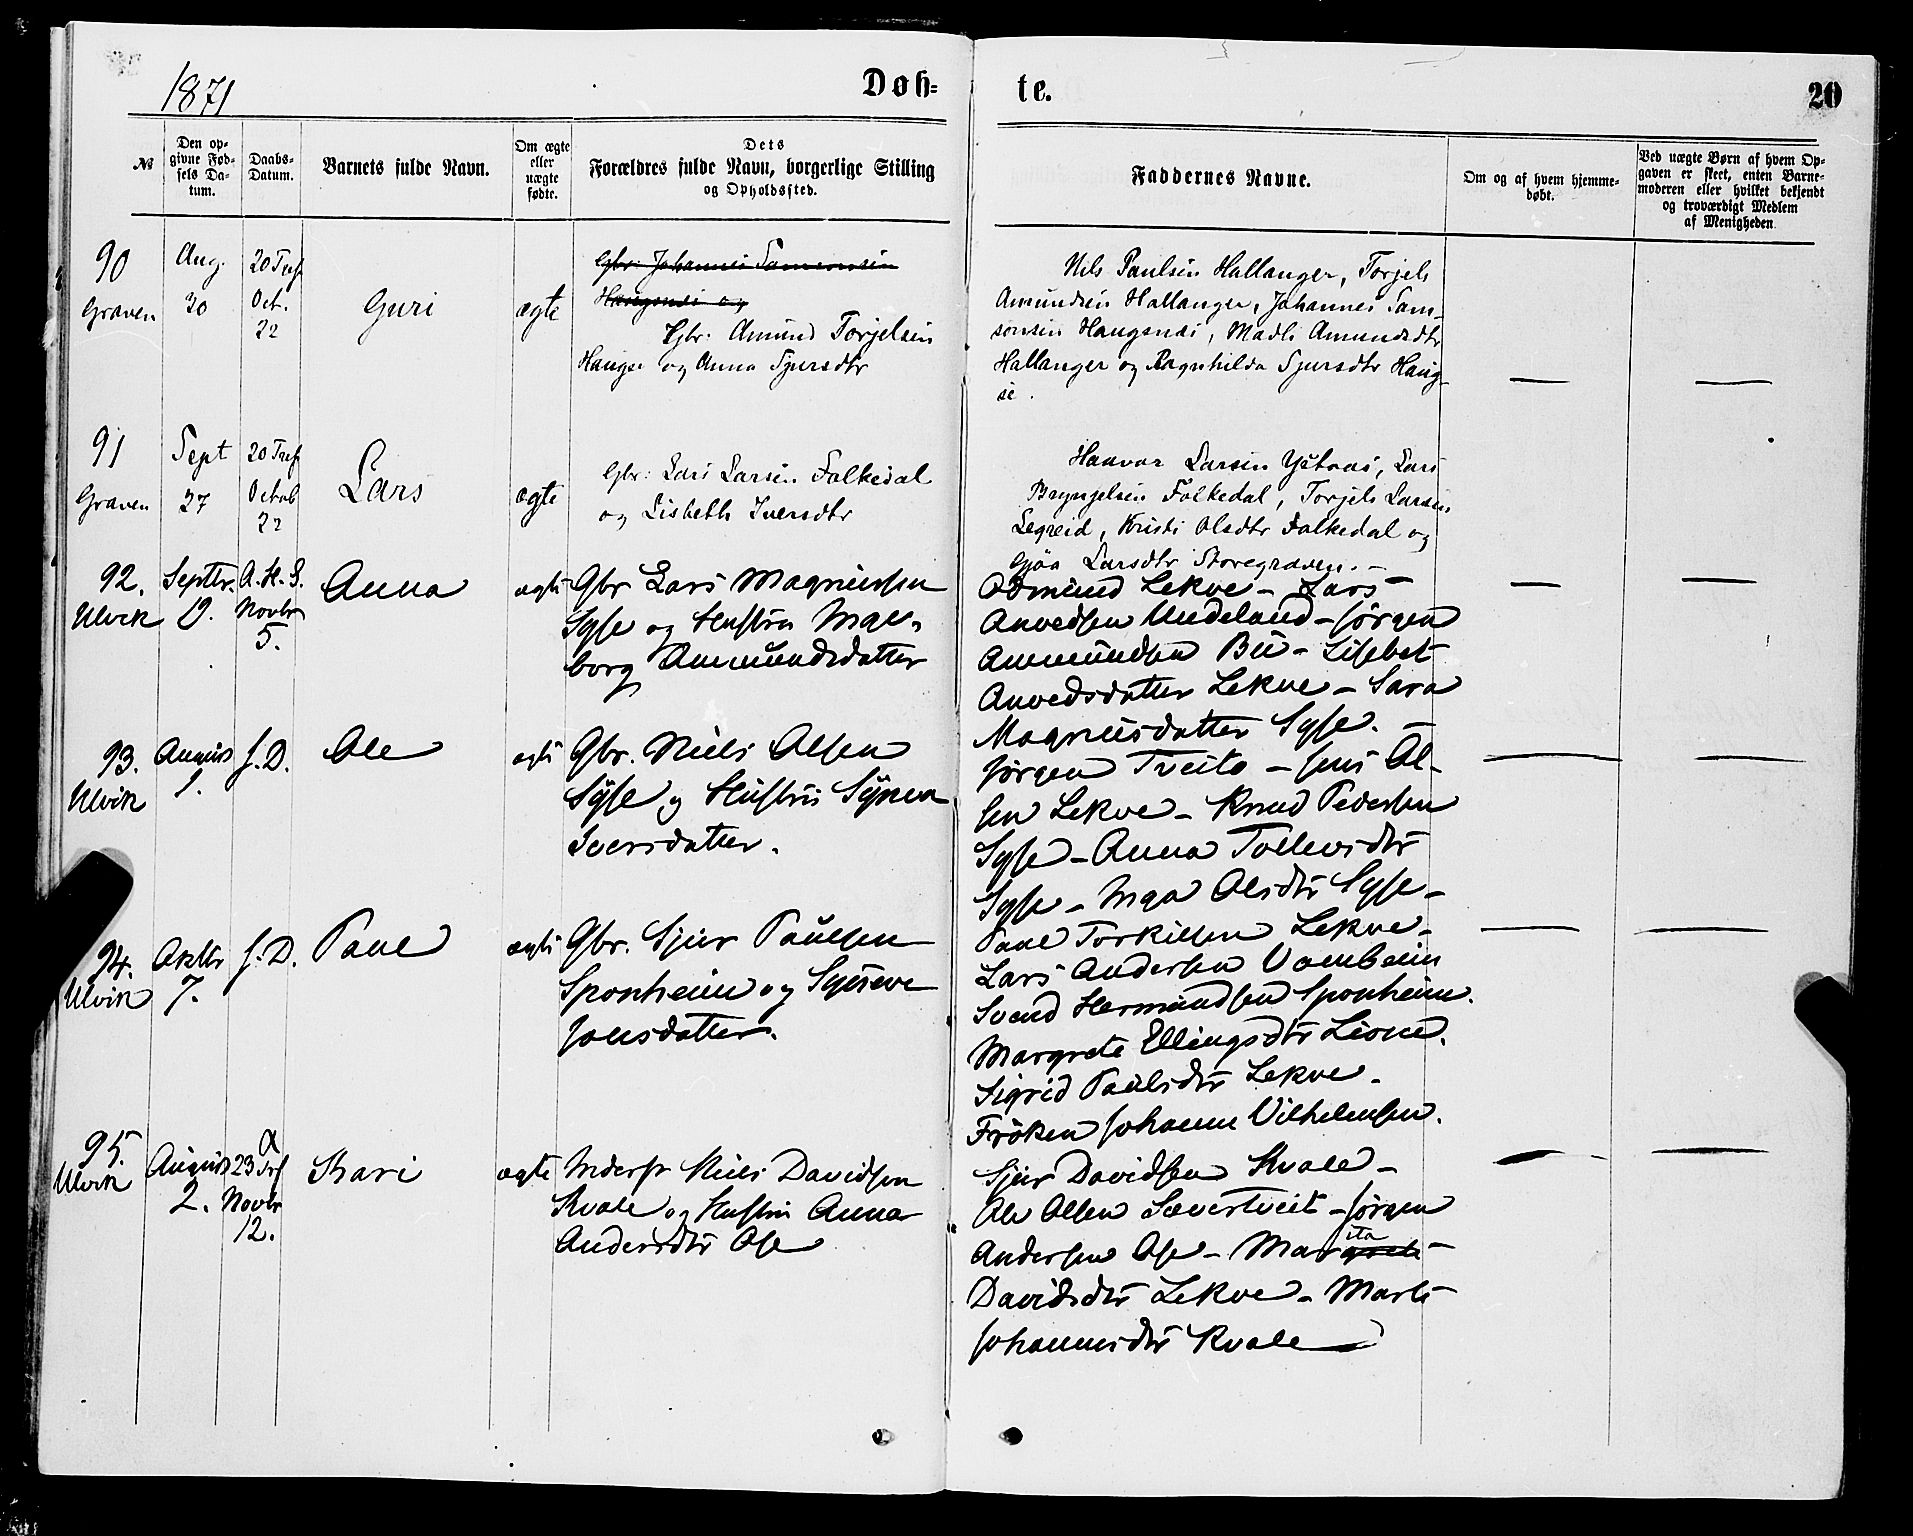 1871
Døb-
te.
20
№
Den op-
givne Fød-
sels Da-
tum.
Daabs-
Datum.
Barnets fulde Navn.
Om ægte
eller
uægte
fødte.
Dets
Forældres fulde Navn, borgerlige Stilling
og Opholdssted.
Faddernes Navne.
Om og af hvem hjemme-
døbt.
Ved uægte Børn af hvem Op-
gaven er skeet, enten Barne-
moderen eller hvilket bekjendt
og troværdigt Medlem
af Menigheden.
90
Graven
Aug.
30
20 Tref
Oct.
22
Guri
ægte
Gbr: Johannes Samsonsen
Haugsnæs og
Gbr. Amund Torjelsen
Haugse og Anna Sjursdtr
Nils Paulsen Hallanger, Torjels
Amundsen Hallanger, Johannes Sam-
sonsen Haugsnæs, Madli Amundsdtr
Hallanger og Ragnhilda Sjursdtr Haug-
se.
91
Graven
Sept
27
20 Tref
Octob
22
Lars
ægte
Gbr: Lars Larsen Folkedal
og Lisbeth Iversdtr
Haavar Larsen Ystaas, Lars
Bryngelsen Folkedal, Torjels Larsen
Legreid, Kristi Olsdtr Folkedal og
Gjøa Larsdtr Storegraven. -
92.
Ulvik
Septbr.
9.
A. H. D.
Novbr
5.
Anna
ægte
Gbr Lars Magnussen
Syse og Hustru Mar-
borg Ammundsdatter
Odmund Lekve - Lars
Anvedsen Undeland - Jørgen
Ammundsen Bu - Lisbet
Anvedsdatter Lekve - Sara
Magnusdatter Syse. -
93.
Ulvik
August
1.
J. D.
Ole
ægte
Gbr. Niels Olsen
Syse og Hustru Synva
Iversdatter.
Jørgen Tveito - Jens Ol-
sen Lekve - Knud Pedersen
Syse - Anna Tollevsdtr
Syse - Inga Olsdtr Syse -
94.
Ulvik
Oktbr
7.
J. D.
Paul
ægte
Gbr. Sjur Paulsen
Sponheim og Syneve
Jonsdatter.
Paul Torkilsen Lekve -
Lars Andersen Vambeim
Svend Hermundsen Sponheim.
Margrete Ellingsdtr Lione.
Sigrid Paulsdtr Lekve -
Frøken Johanne Vilhelmsen.
95.
Ulvik
August
2.
23 Trf
Novbr
12.
Kari
ægte
Inderst Niels Davidsen
Kvale og Hustru Anna
Andersdtr Ose
Sjur Davidsen Kvale -
Ole Olsen Sævertveit - Jørgen
Andersen Ose - Margrete ita -
Davidsdtr Lekve - Marte
Johannesdtr Kvale